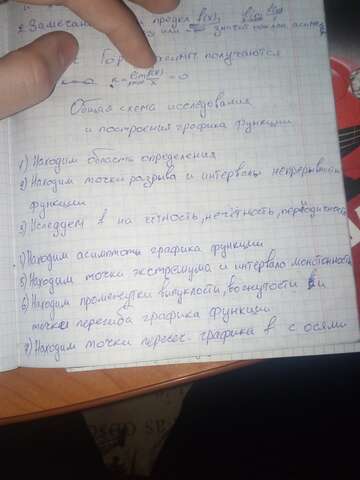 2. Замечание
получаются
= 0
Общая схема исследования
и построения графика функции
1) Находим область определения
2) Находим точки разрыва и интервалы непрерывности
функции
3) в на чётность, нечётность, периодичность
4) Находим асимптоты графика функции
5) Находим точки экстремума и интервало монотонности
6) Находим промежутки выпуклости, вогнутости и
точки перегиба графика функции
7) Находим точки пересеч. графика в с осями